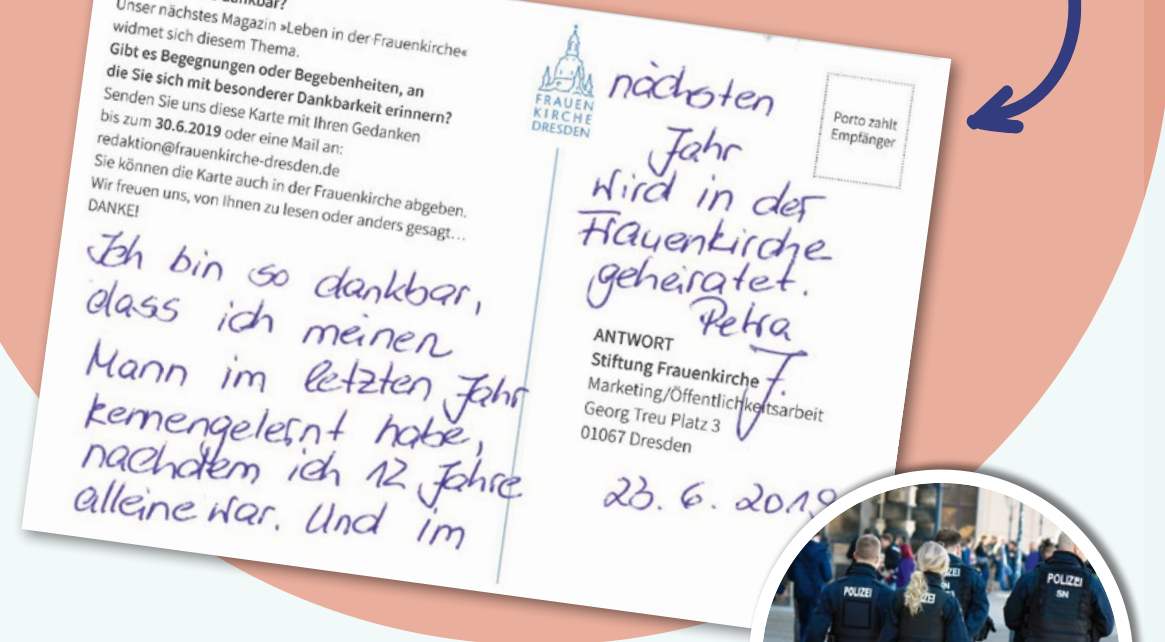 dankbar?
Unser nächstes Magazin »Leben in der Frauenkirche«
widmet sich diesem Thema.
Gibt es Begegnungen oder Begebenheiten, an
die Sie sich mit besonderer Dankbarkeit erinnern?
Senden Sie uns diese Karte mit Ihren Gedanken
bis zum 30.6.2019 oder eine Mail an:
redaktion@frauenkirche-dresden.de
Sie können die Karte auch in der Frauenkirche abgeben.
Wir freuen uns, von Ihnen zu lesen oder anders gesagt…
DANKE!
Ich bin so dankbar,
dass ich meinen
Mann im letzten Jahr
kennengelernt habe,
nachdem ich 12 Jahre
alleine war. Und im
FRAUEN
KIRCHE
DRESDEN
nächsten
Jahr
wird in der
Frauenkirche
geheiratet.
Petra
J.
Porto zahlt
Empfänger
ANTWORT
Stiftung Frauenkirche
Marketing/Öffentlichkeitsarbeit
Georg Treu Platz 3
01067 Dresden
23. 6. 2019
POLIZEI
ZEI
POLIZEI
SN